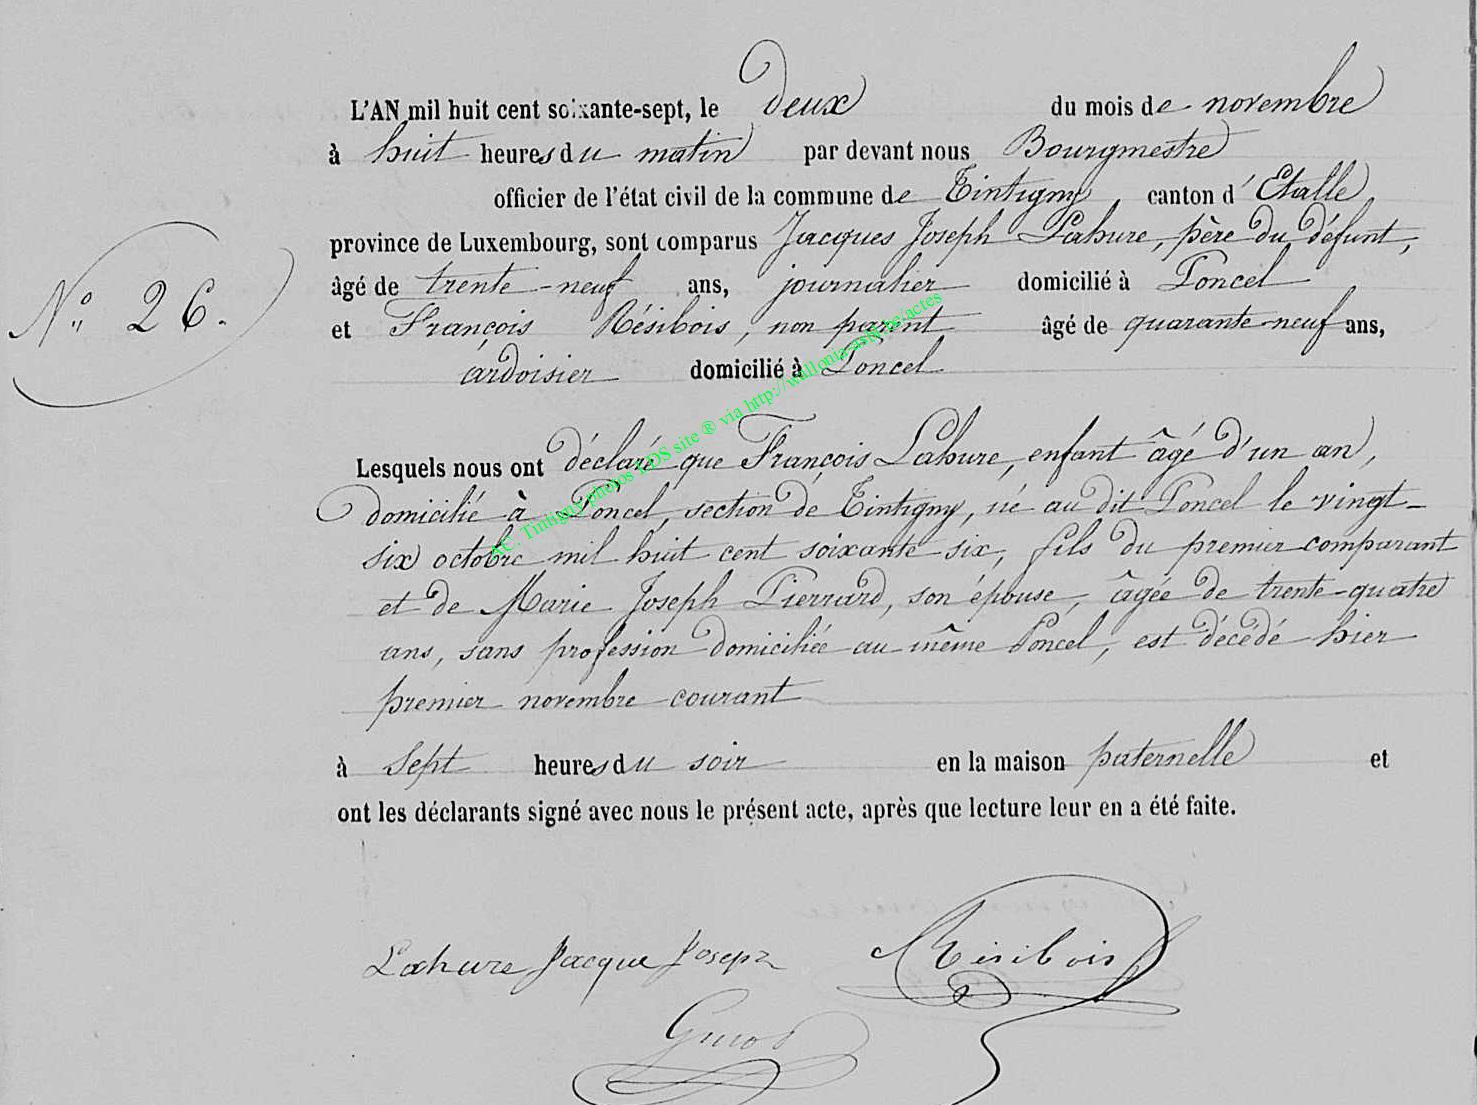 L'AN mil huit cent soixante-sept, le deux du mois de novembre
à huit heures du matin par devant nous Bourgmestre
officier de l'état civil de la commune de Tintigny, canton d'Etalle
province de Luxembourg, sont comparus Jacques Joseph Lahure, père du défunt,
âgé de trente-neuf ans, journalier domicilié à Poncel
N° 26.
et François Résibois, non parent âgé de quarante-neuf ans,
ardoisier domicilié à Poncel
AC. Tintigny photos EDS site ® via http://wallonia-asbl.be/actes
Lesquels nous ont déclaré que François Lahure, enfant âgé d'un an,
domicilié à Poncel, section de Tintigny, né au dit Poncel le vingt-
six octobre mil huit cent soixante-six, fils du premier comparant
et de Marie Joseph Pierrard, son épouse, âgée de trente-quatre
ans, sans profession domiciliée au même Poncel, est décédé hier
premier novembre courant
à sept heures du soir en la maison paternelle et
ont les déclarants signé avec nous le présent acte, après que lecture leur en a été faite.
Lahure Jacque Joseph Résibois